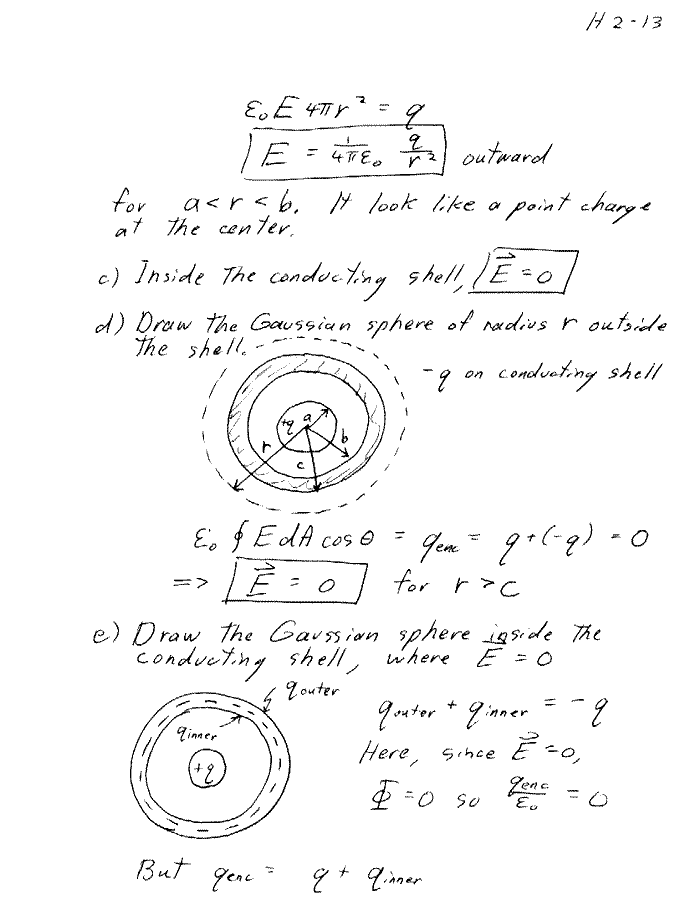 H 2-13
ε₀ E 4πr² = q
E = 1/4πε₀ q/r² outward
for a < r < b. It look like a point charge
at the center.
c) Inside the conducting shell, E⃗ = 0
d) Draw the Gaussian sphere of radius r outside
the shell.
-q on conducting shell
+q a
r b
c
ε₀ ∮ E dA cos θ = q_enc = q + (-q) = 0
=> E⃗ = 0 for r > c
e) Draw the Gaussian sphere inside the
conducting shell, where E⃗ = 0
q_outer
q_inner
+q
q_outer + q_inner = -q
Here, since E⃗ = 0,
Φ = 0 so q_enc/ε₀ = 0
But q_enc = q + q_inner